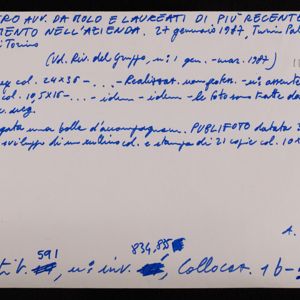 RO AVV. DA MOLO E LAUREATI DI PIÙ RECENTE
MENTO NELL'AZIENDA. 27 gennaio 1987, Turin Pal
i Torino
(Vd. Riv. del Gruppo, n: 1 gen. - mar. 1987)
col. 24x36 - ...- Realizzaz.
col. 10,5x15 - ... - idem - idem - le foto sono fatte da
neg.
gata una bolla d'accompagnam. PUBLIFOTO datata 3
sviluppo di un rullino col. e stampa di 21 copie col. 10
A.
591 834,835
, n: inv. , COLLOCAZ. 1b-